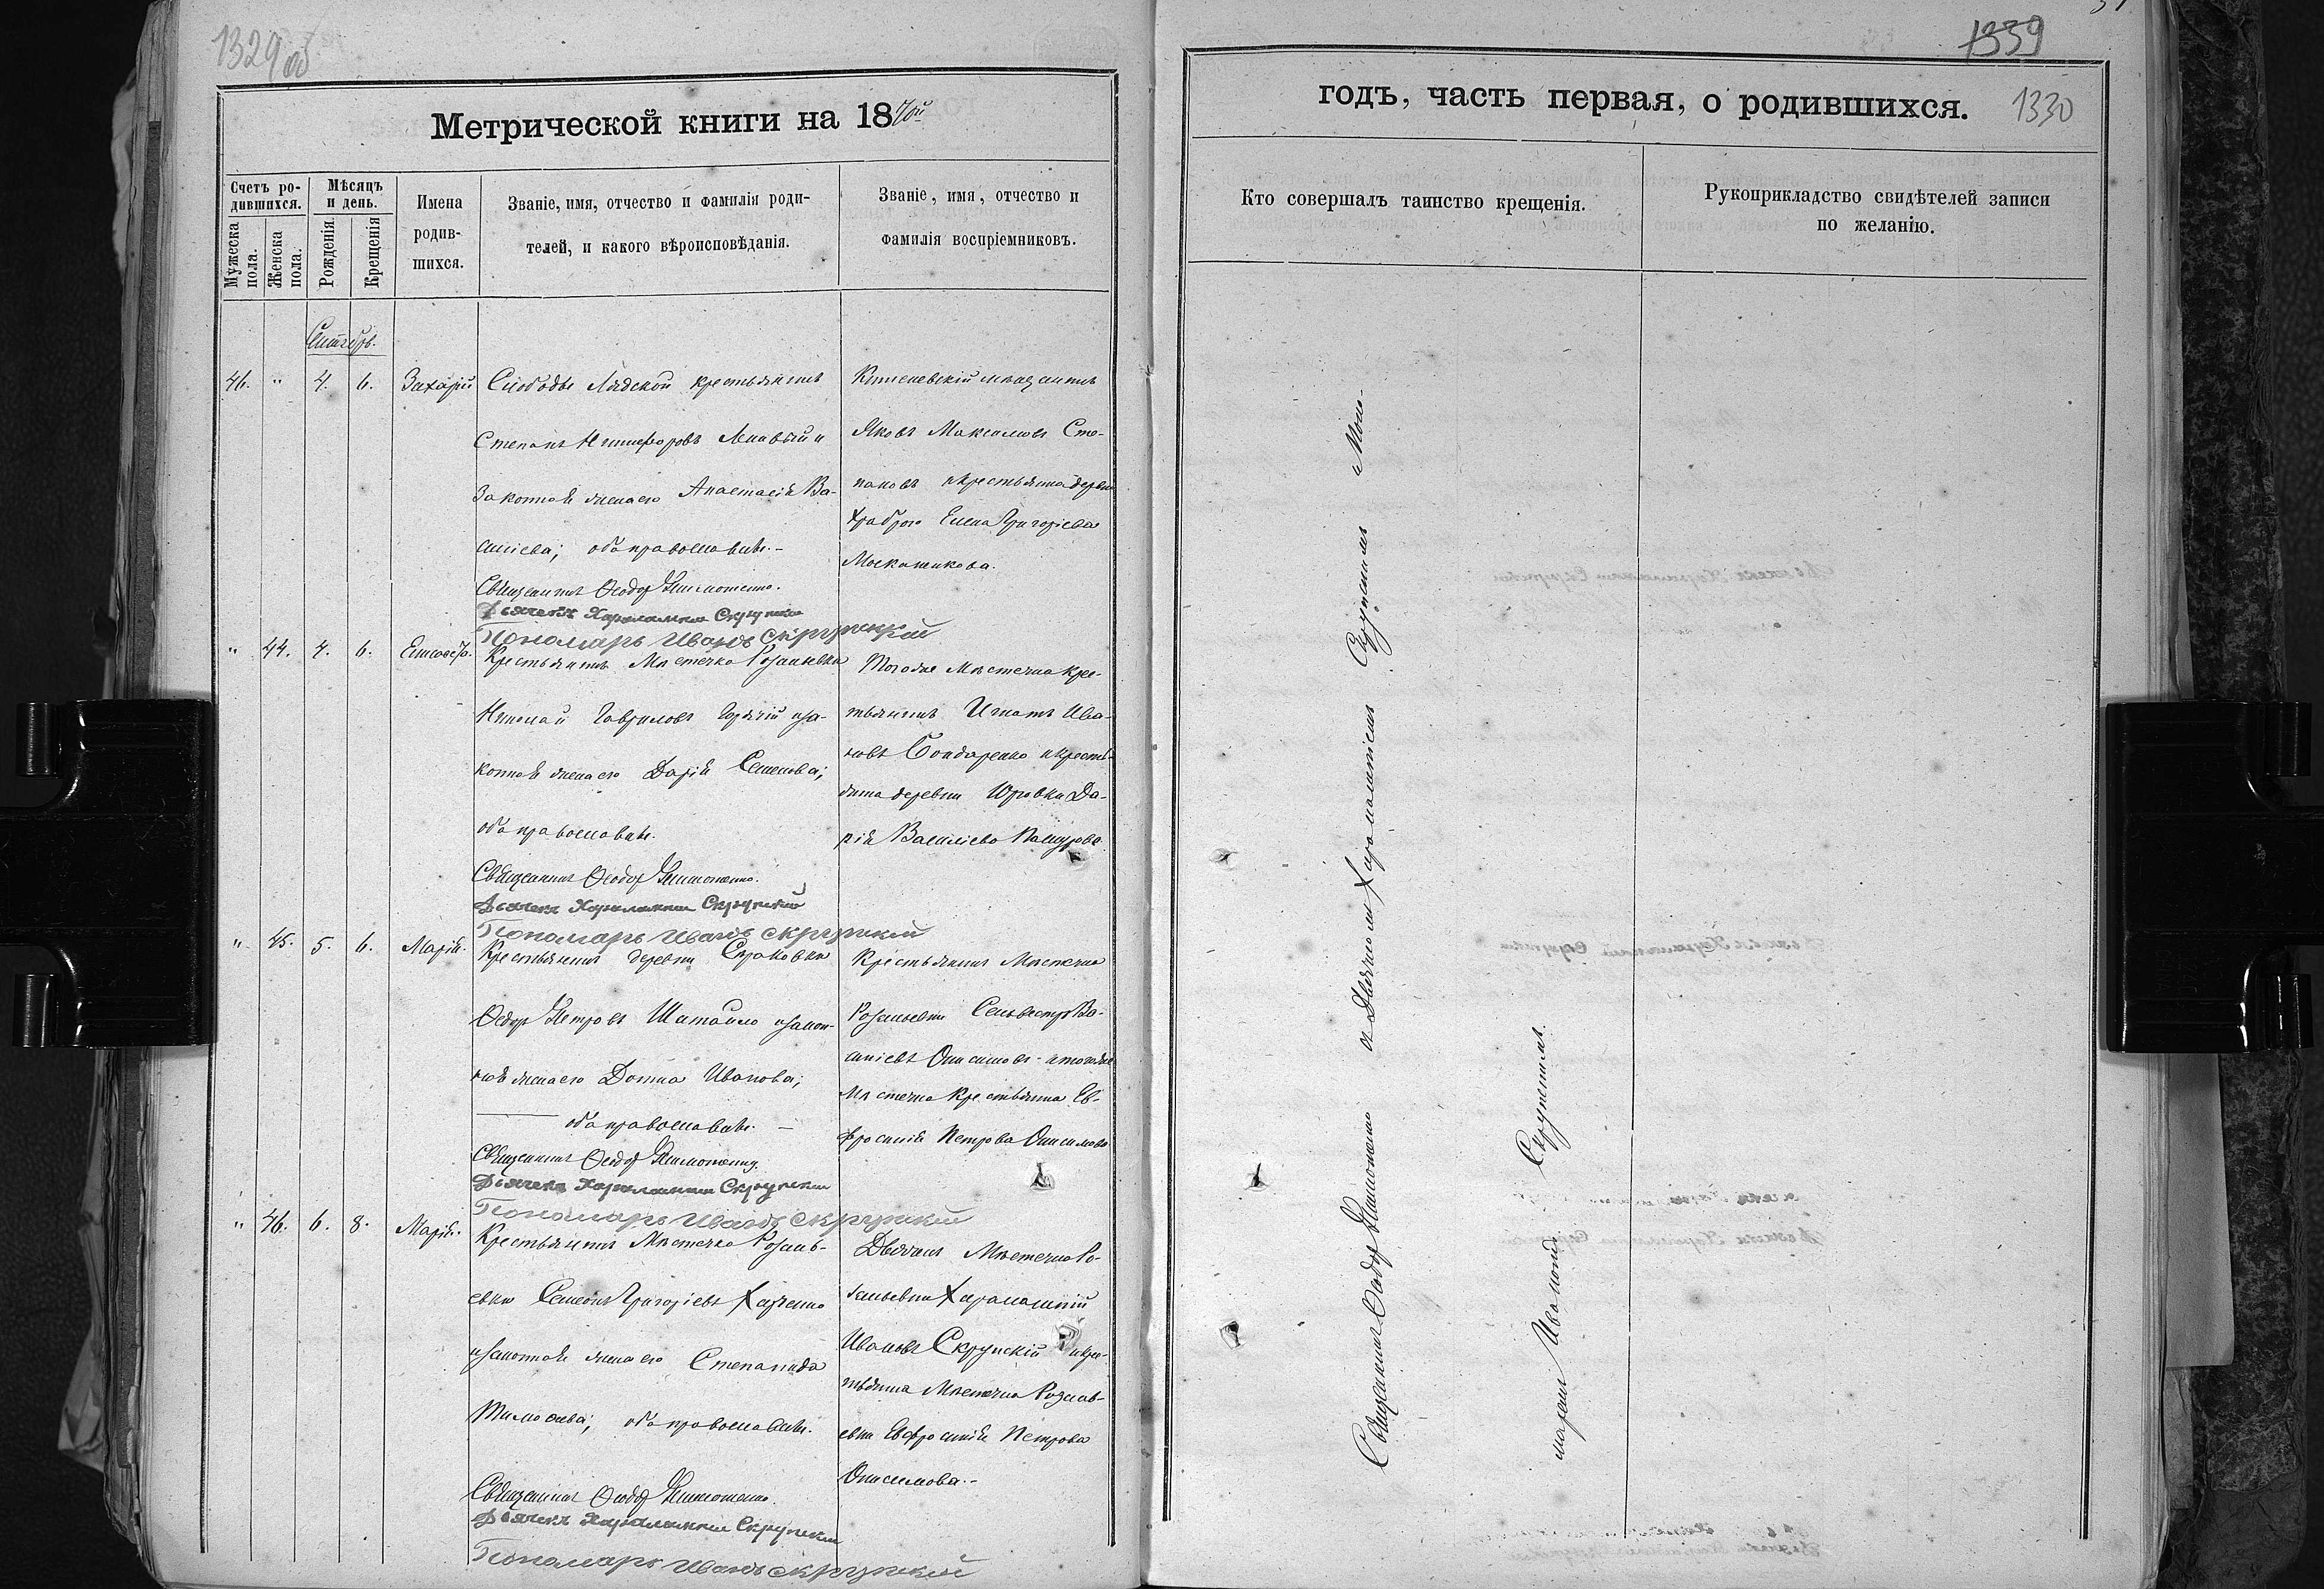 1329 об
Метрической книги на 18 70й
Счетъ ро-
дившихся.
Мужеска пола.
Женска пола.
Мѣсяцъ
и день.
Рожденія.
Крещенія
Имена
родив-
шихся.
Званіе, имя, отчество и фамилія роди-
телей, и какого вѣроисповѣданія.
Званіе, имя, отчество и
фамилія воспріемниковъ.
Сентябрь.
46. " 4. 6. Захарій
Слободы Лядской крестьянинъ
Степанъ Никифоровъ и
законная жена его Анастасія Ва-
силіева; оба православн.-
Священникъ Ѳеодоръ
Дьячекъ Харалампій Скрупскій
Пономарь Иванъ Скрупскій
мѣщанинъ
Яковъ Максимовъ Сте-
пановъ и крестьянка дерев
Храброй Елена Григорієва
Москаликова.
" 44. 4. 6. Елисавеѳ.
Крестьянинъ Мѣстечка Розальевки
Николай Гавриловъ Горячій и за-
конная жена его Дарія Семенова;
оба православн.
Священникъ Ѳеодоръ
Дьячекъ Харалампій Скрупскій
Пономарь Иванъ Скрупскій
Того же Мѣстечка кре-
тьянинъ Игнатъ Ива-
новъ Бондаренко и кресть-
янка деревни Юровки Да-
рія Василіева
" 45. 5. 6. Марія.
Крестьянинъ деревни
Ѳедоръ Петровъ Шатайло и закон-
ная жена его Домна Иванова;
оба православн. -
Священникъ Ѳеодоръ
Дьячекъ Харалампій Скрупскій
Пономарь Иванъ Скрупскій
Крестьянинъ Мѣстечка
Розальевки Сельвестръ Ва-
силіевъ Онисимовъ и того же
Мѣстечка Крестьянка Ев-
фросинія Петрова Онисимова
" 46. 6. 8. Марія.
Крестьянинъ Мѣстечка Розаль-
евки Семеонъ Григоріевъ Харченко
и законная жена его Степанида
Тимоѳеева; оба православн.
Священникъ Ѳеодоръ
Дьячекъ Харалампій Скрупскій
Пономарь Иванъ Скрупскій
Дьячекъ Мѣстечка Ро-
зальевки Харалампій
Ивановъ Скрупскій и кре-
тьянка Мѣстечка Розаль-
евки Евфросинія Петрова
Онисимова.-
1339
1330
годъ, часть первая, о родившихся.
Кто совершалъ таинство крещенія.
Рукоприкладство свидѣтелей записи
по желанію.
Священникъ Ѳеодоръ съ Дьячкомъ Харалампіемъ Скрупскимъ и Поно-
маремъ Иваномъ Скрупскимъ.